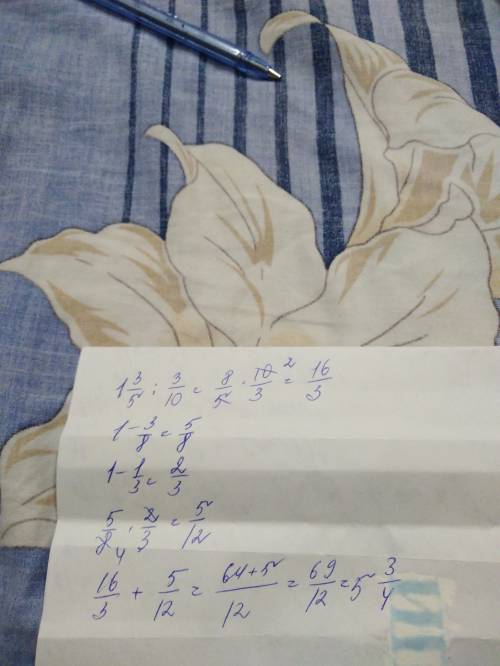 1 3/5 : 3/10 = 8/5 · 10/3 2 = 16/3
1 - 3/8 = 5/8
1 - 1/3 = 2/3
5/8 4 · 2/3 = 5/12
16/3 + 5/12 = 64+5/12 = 69/12 = 5 3/4